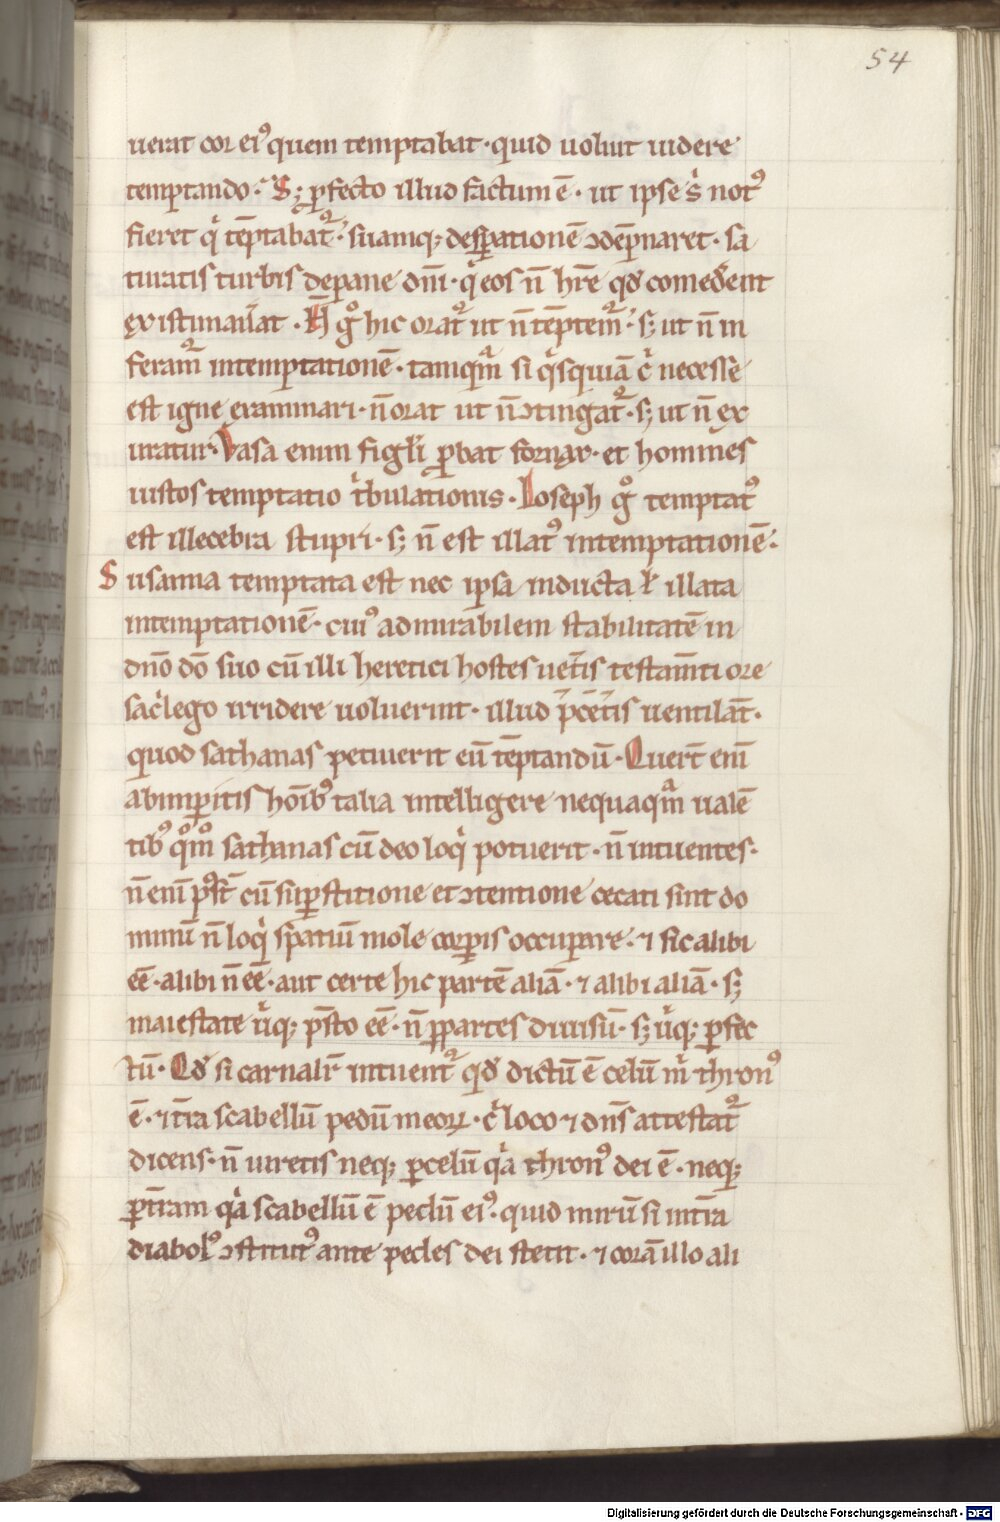 54
uerat cor ei⁹ quem temptabat · quid uoluit uidere
temptando · S; ꝑfecto illud factum ē · ut ipse s᷑ not⁹
fieret q̇ tēptabat᷑ · suamq; despationē ↄdēpnaret · sa
turatis turbis de pane dn̄i · q̇ eos n̄ hr̄e qđ comederent
existimauerat · N̄ g° hic orat᷑ ut n̄ tēptem᷑ · s; ut n̄ in
feram᷑ in temptationē · tamqᵃm si qⁱsquiā cⁱ necesse
est igne examinari · n̄ orat ut n̄ ↄtingat᷑ · s; ut n̄ ex
uratur · Vasa enim figłi ꝓbat fornax · et homines
iustos temptatio tⁱbulationis · Ioseph g° temptat⁹
est illecebra stupri · s; n̄ est illat⁹ in temptationē ·
Susanna temptata est nec ipsa inducta ł illata
in temptationē · cui⁹ admirabilem stabilitatē in
dn̄o dō suo cū illi heretici hostes uet̄is testam̄ti ore
sacⁱlego irridere uoluerint · illud p̄ cet̄is uentilāt ·
quod sathanas petiuerit eū tēptandū · Querūt enī
ab imperitis hōib⁹ talia intelligere nequaqᵃm ualē
tib⁹ q°m° sathanas cū deo loqⁱ potuerit · n̄ intuentes ·
n̄ enī pn̄t cū suꝑstitione et ↄtentione cecati sint do
minū n̄ loqⁱ spatiū mole corꝑis occupare · ⁊ sic alibi
eē · alibi n̄ eē · aut certe hic partē aliā · ⁊ alibi aliā · s;
maiestate uⁱq; p̄sto eē · n̄ ꝑ partes diuisū · s; uⁱq; ꝑfec
tū · Qđ si carnalir̄ intuent᷑ qđ dictū ē celū mⁱ thron⁹
ē · ⁊ t̄ra scabellū pedū meoꝝ · cⁱ loco ⁊ dn̄s attestat᷑
dicens · n̄ iuretis neq; ꝑ celū qᵃ thron⁹ dei ē · neq;
ꝑ t̄ram qᵃ scabellū ē pedū ei⁹ · quid mirū si in t̄ra
diabol⁹ ↄstitut⁹ ante pedes dei stetit · ⁊ corā illo ali
Digitalisierung gefördert durch die Deutsche Forschungsgemeinschaft - DFG